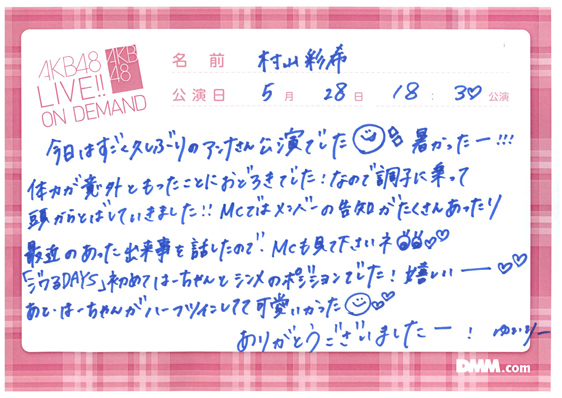 AKB48
LIVE!!
ON DEMAND
AKB
48
名 前 村山彩希
公演日 5月 28日 18:30公演
今日はすごく久しぶりのアンナさん公演でした 暑かったー!!!
体力が意外ともったことにおどろきでした!なので調子に乗って
頭からとばしていきました!! MCではメンバーの告知がたくさんあったり
最近のあった出来事を話したので、MCも見て下さいネ
「ジワるDAYS」初めてはーちゃんとシンメのポジションでした! 嬉しいー
あと、はーちゃんがハーフツインしてて可愛いかった
ありがとうございましたー! ゆいりー
DMM.com